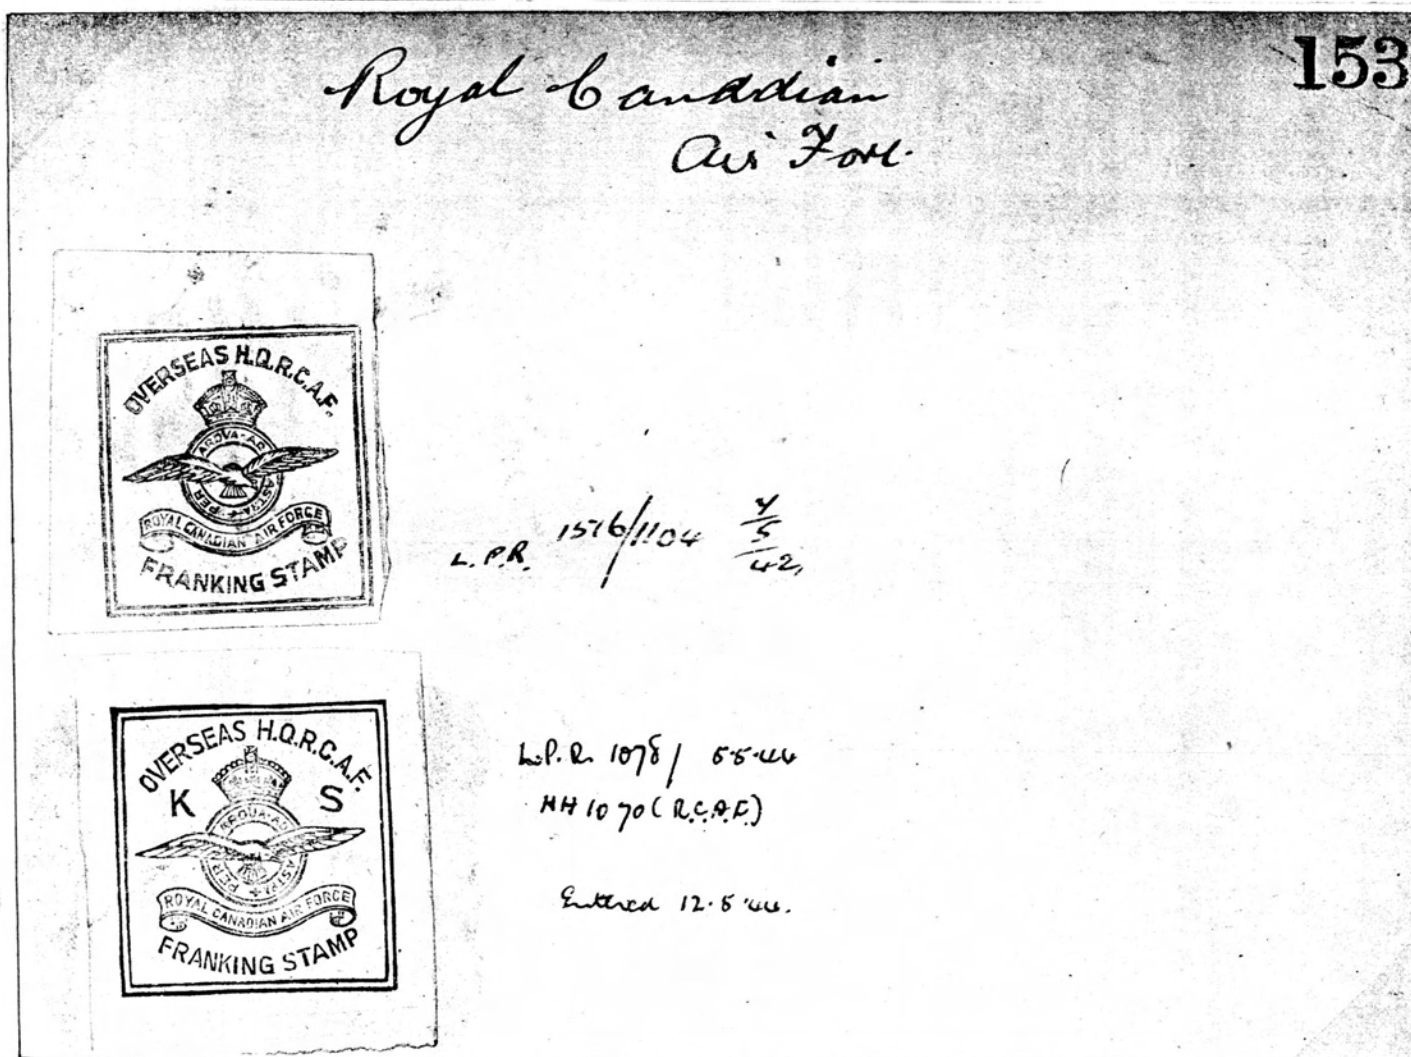 153
Royal Canaddian
Air Force
OVERSEAS H.Q.R.C.A.F.
ARDVA-AD
PER ASTRA
ROYAL CANADIAN AIR FORCE
FRANKING STAMP
L.P.R. 1576/1104 4/5/42,
OVERSEAS H.Q.R.C.A.F.
K S
ARDUA-AD
PER ASTRA
ROYAL CANADIAN AIR FORCE
FRANKING STAMP
L.P.R. 1078/ 5.5.44
HH 1070 (R.C.A.F.)
Entered 12.5.44.